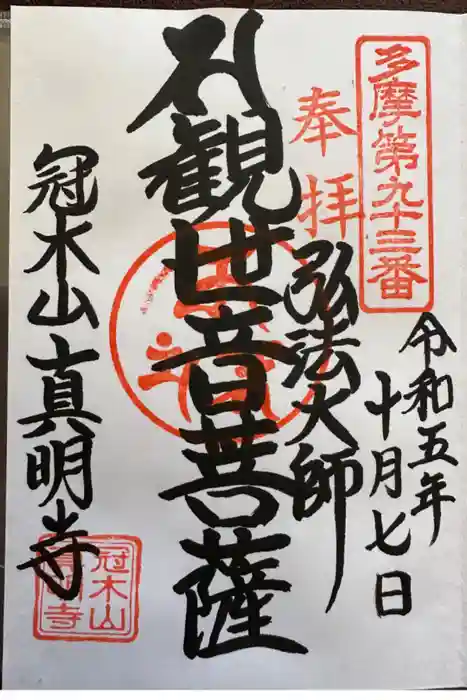 多摩第九十三番
令和五年
十月七日
奉拝
弘法大師
観世音菩薩
冠木山真明寺
冠木山
真明寺